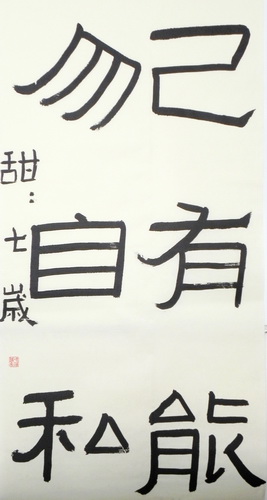 己有能
勿自私
甜:七歲